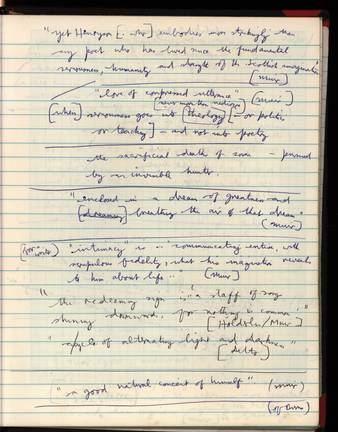 "yet Henryson [- who] embodies more strikingly than
any poet who has lived since the fundamental
seriousness, humanity and strength of the Scottish imagination"
[Muir]
"love of compressed utterance" (Muir)
[when] seriousness goes into [theology] [- or politics
or teaching] - and not into poetry
the sacrificial death of  - pursued
by an invisible hunter.
"enclosed in a dream of greatness and
[dreaming] breathing the air of that dream"
(Muir)
"intimacy" is .. communicating entire, with
scrupulous fidelity, what his imagination reveals
to him about life .."
(Muir)
"the redeeming sign .. "a staff of
shining downward, for nothing is common"
[Hölderlin/Muir]
"apples of alternating light and darkness"
"a good natural conceit of himself" (Muir)
(of Burns)